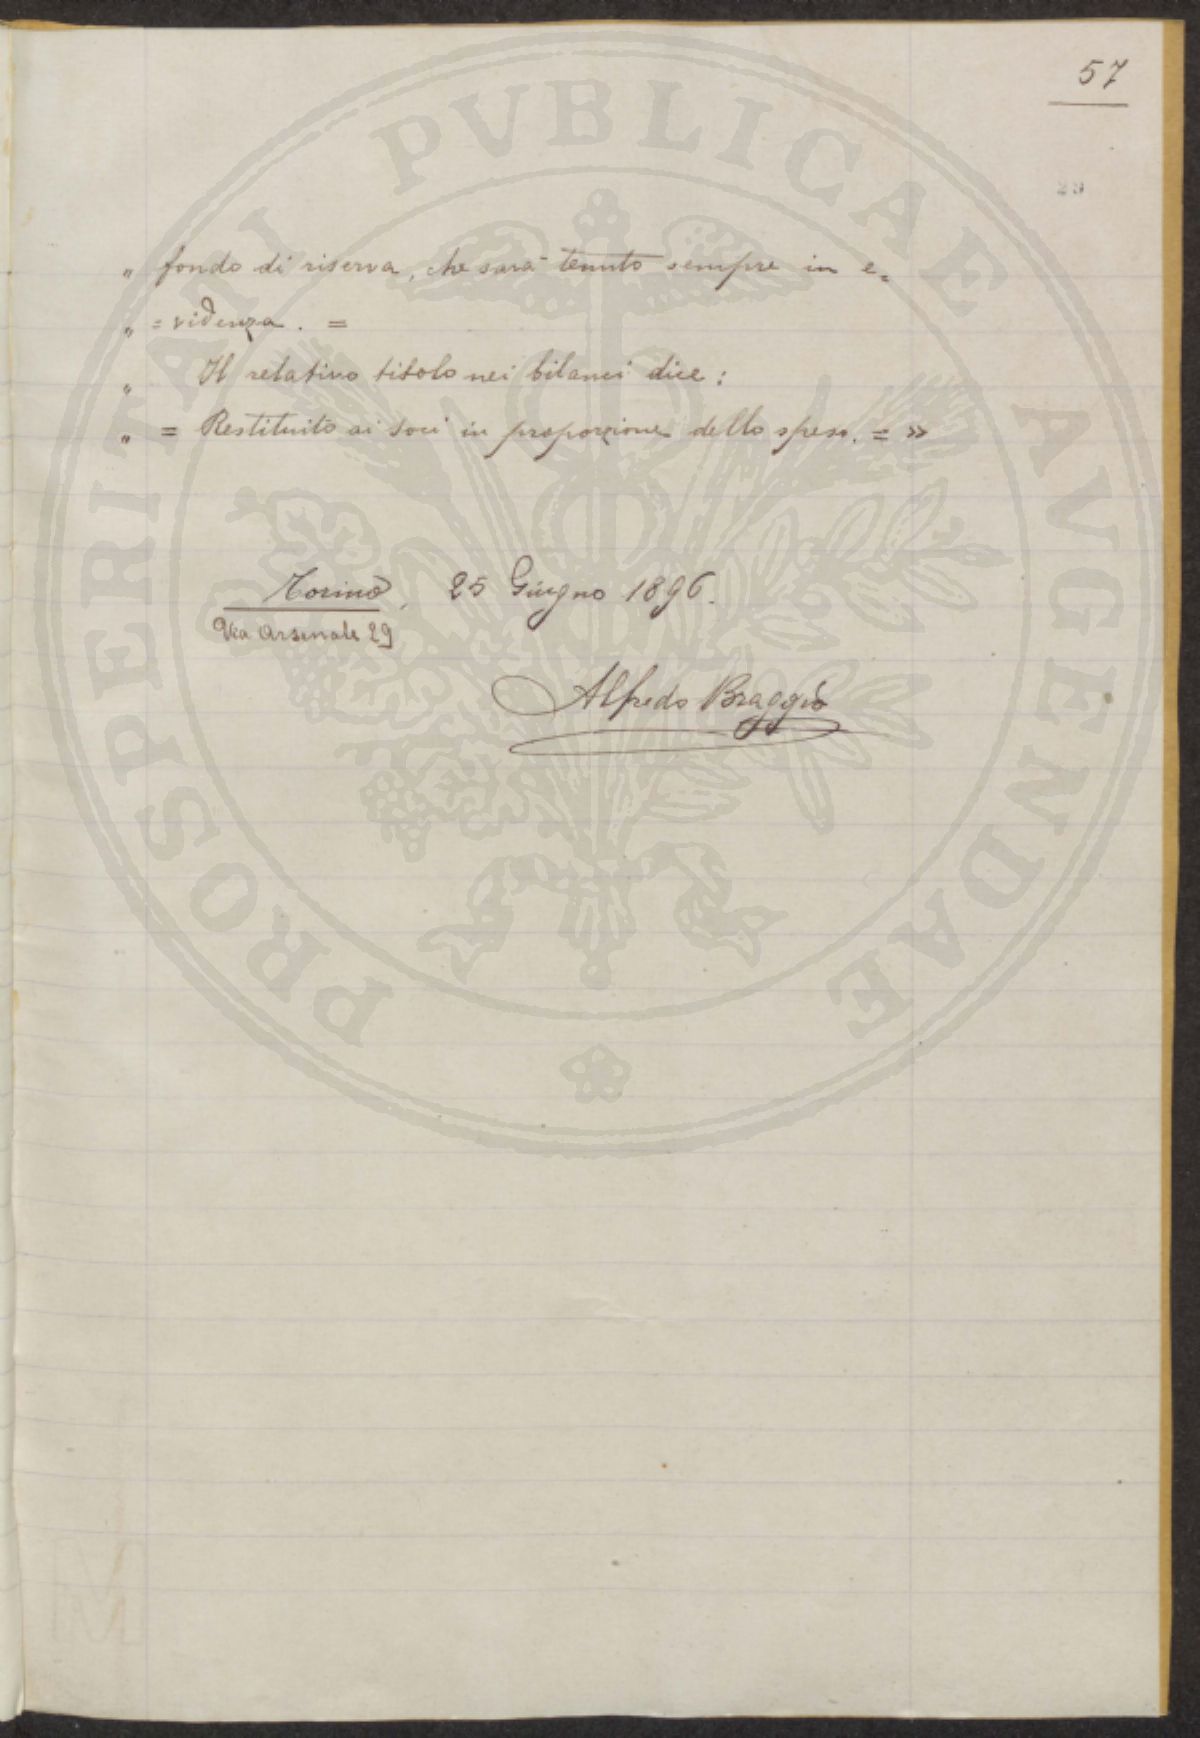 57
29
„ fondo di riserva, che sarà tenuto sempre in e=
„ = videnza. =
„ Il relativo titolo nei bilanci dice:
„ = Restituito ai soci in proporzione dello speso. = »
Torino, 25 Giugno 1896.
Via Arsenale 29
Alfredo Braggio
PROSPERITATI PVBLICAE AVGENDAE